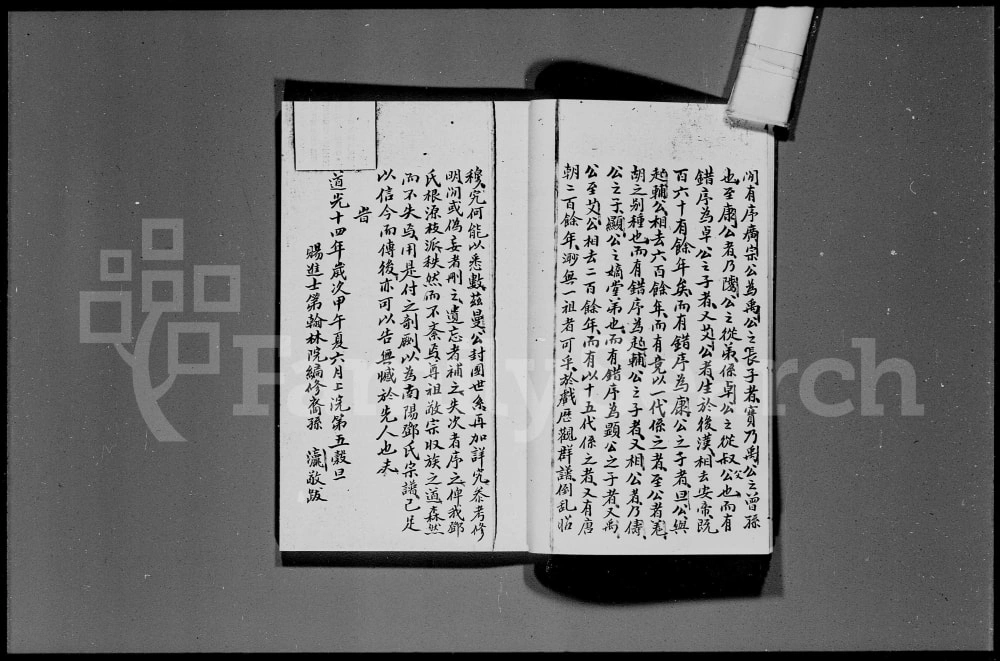 間有序廣宗公為禹公之長子者實乃禹公之曾孫
也至康公者乃隲公之從弟係卓公之從叔公也而有
錯序為卓公之子者又艾公者生於後漢相去安帝既
百六十有餘年矣而有錯序為康公之子者旦公與
赹輔公相去六百餘年而有竟以一代係之者至公者羗
胡之别種也而有錯序為赹輔公之子者又相公者乃儔
公之子顯公之嫡堂弟也而有錯序為顯公之子者又禹
公至艾公相去二百餘年而有以十五代係之者又有唐
朝二百餘年渺無一祖者可乎於戲歷觀群譜倒乱
穆究何能以悉數茲曼公封國世系再加詳究叅考修
明間或偽妄者刪之遺忘者補之失次者序之俾我鄧
氏根源枝派秩然而不紊焉尊祖敬宗収族之道森然
而不失焉用是付之剞劂以為南陽鄧氏宗譜已足
以信今而傳後亦可以告無憾於先人也夫
旹
道光十四年歲次甲午夏六月上浣第五穀旦
賜進士第翰林院編修裔孫 瀛敬跋
FamilySearch